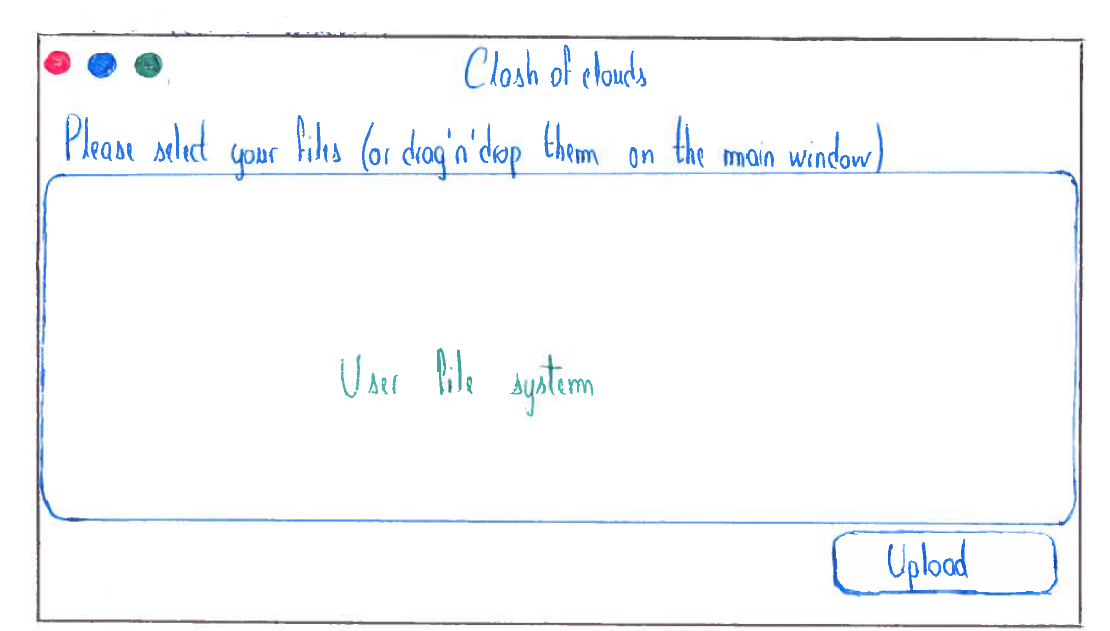 Clash of clouds
Please select your files (or drag'n'drop them on the main window)
User file system
Upload